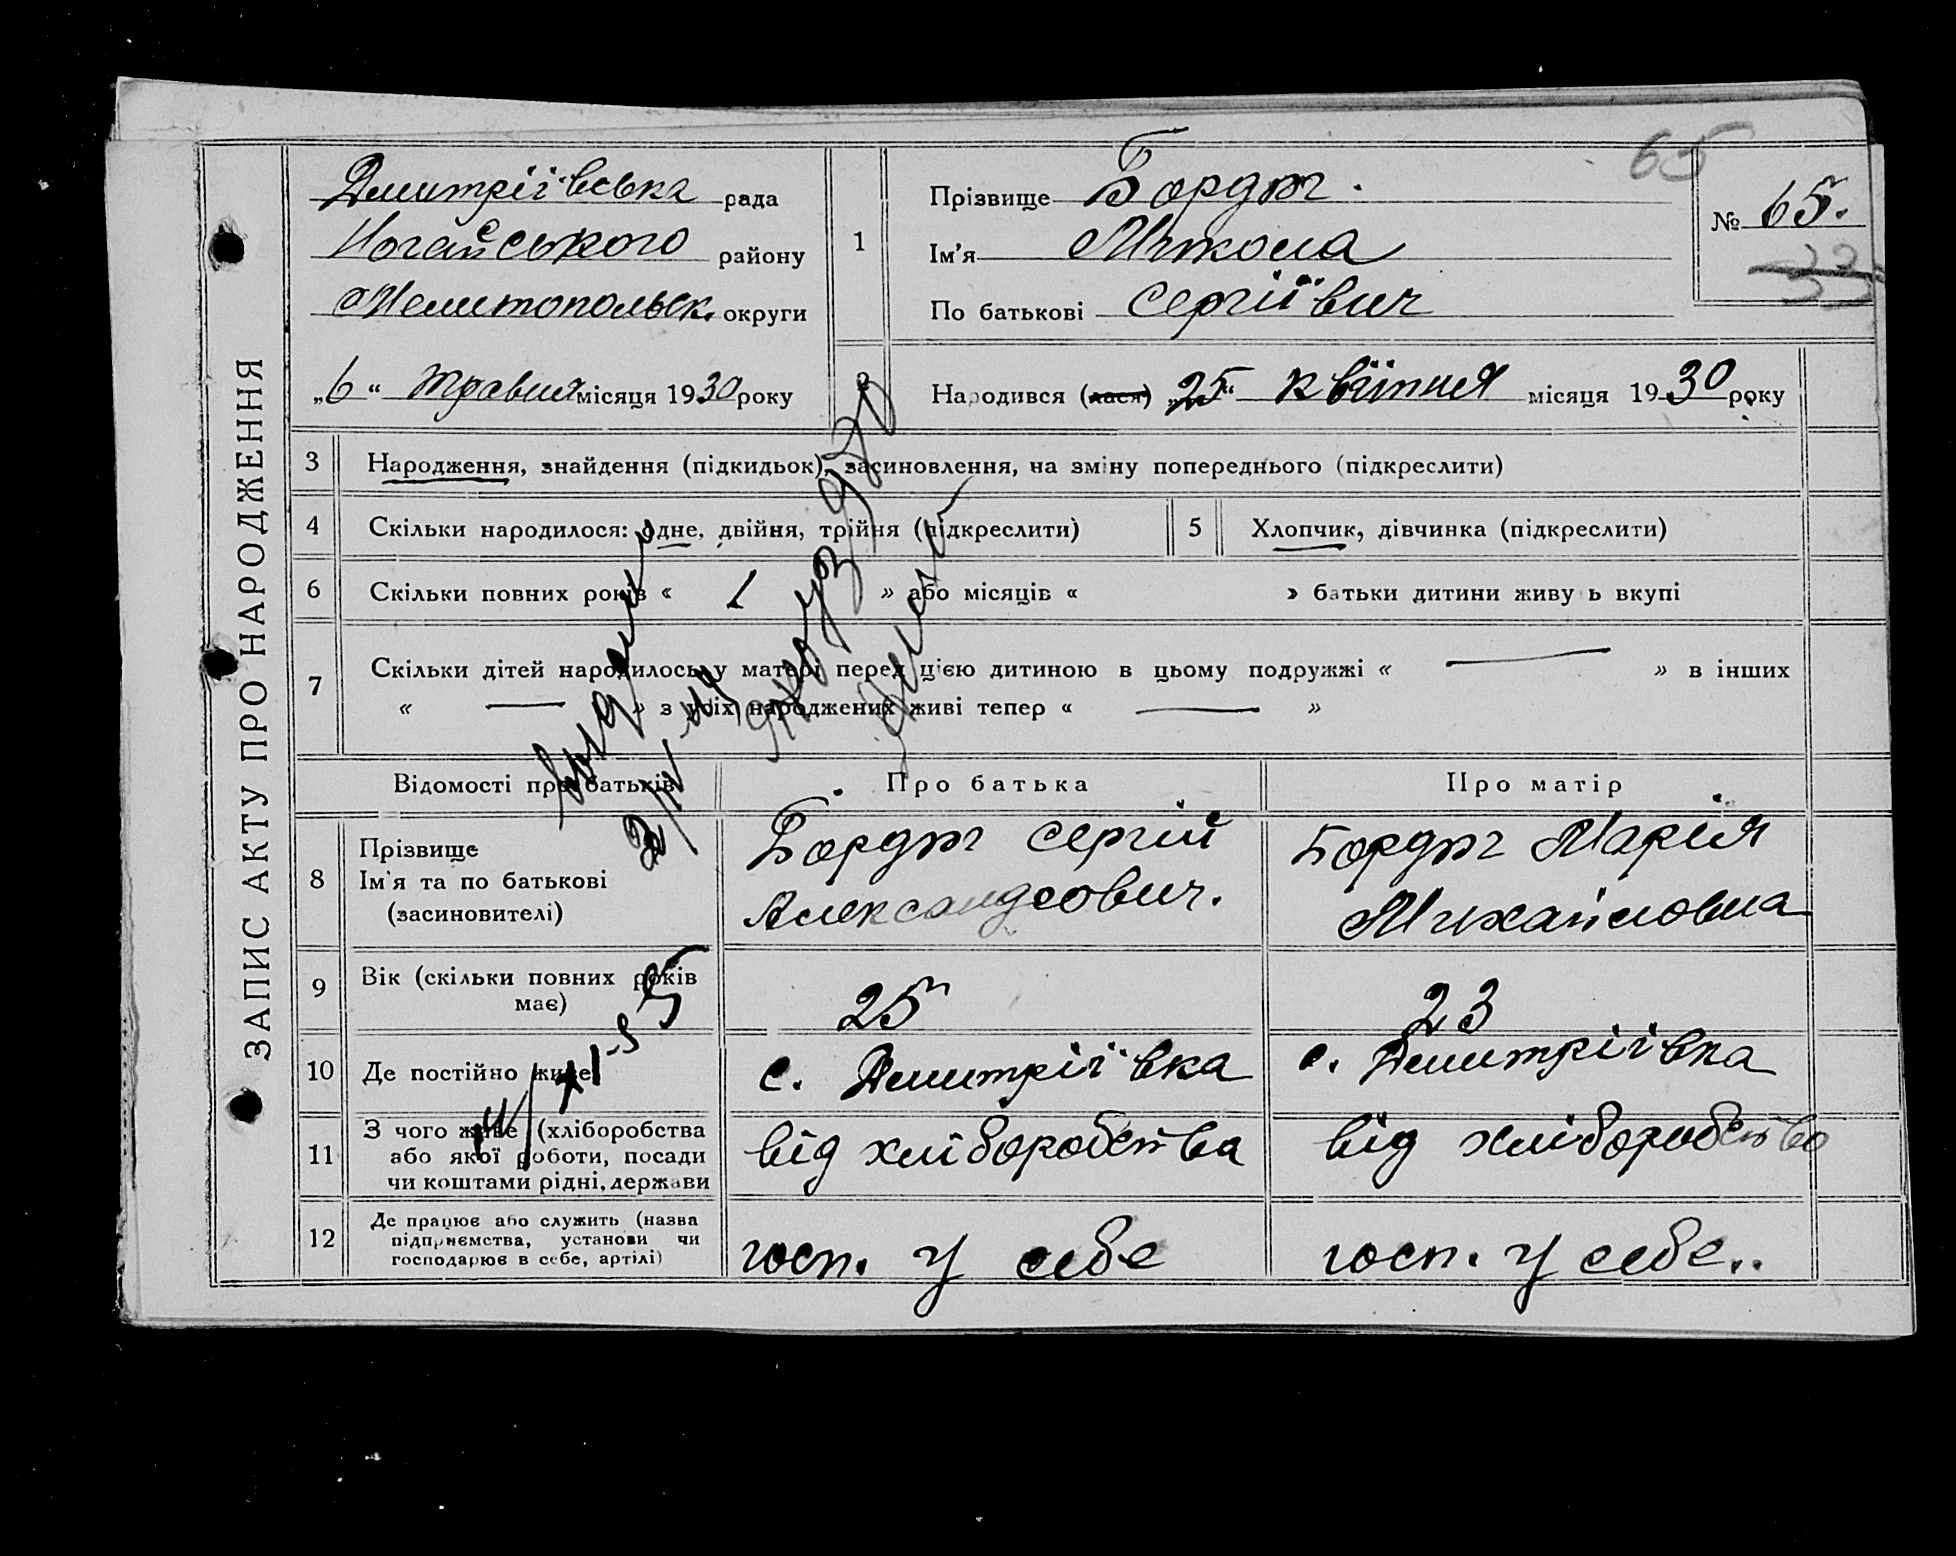 ЗАПИС АКТУ ПРО НАРОДЖЕННЯ
65
Дмитріївська рада
Ногайського району
Мелитопольськ. округи
„6“ Травня місяця 1930 року
1
Прізвище Бордж.
Ім'я Микола
По батькові Сергіївич
№ 65.
33
2
Народився (лася) „25“ Квітня місяця 1930 року
3 Народження, знайдення (підкидьок), засиновлення, на зміну попереднього (підкреслити)
4 Скільки народилося: одне, двійня, трійня (підкреслити)
5 Хлопчик, дівчинка (підкреслити)
6 Скільки повних років « 1 » або місяців « » батьки дитини живуть вкупі
7 Скільки дітей народилось у матері перед цією дитиною в цьому подружжі « — » в інших
« — » з усіх народжених живі тепер « — »
Відомості про батьків
Про батька
Про матір
8 Прізвище
Ім'я та по батькові
(засиновителі)
Бордж Сергій
Александрович.
Бордж Марія
Михайловна
9 Вік (скільки повних років
має)
25
23
10 Де постійно живе
с. Дмитріївка
с. Дмитріївка
11 З чого живе (хліборобства
або якої роботи, посади
чи коштами рідні, держави
від хліборобства
від хліборобства
12 Де працює або служить (назва
підприємства, установи чи
господарює в себе, артілі)
госп. у себе
госп. у себе..